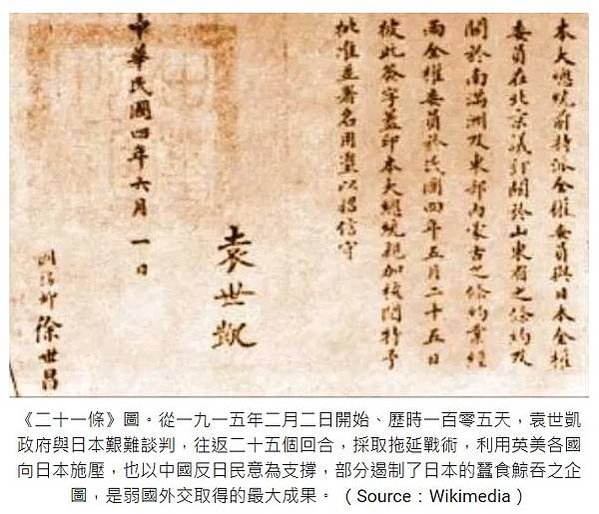 本大總統前特派全權委員與日本全權
委員在北京議訂關於山東省之條約及
關於南滿洲及東部內蒙古之條約業經
兩全權委員於民國四年五月二十五日
彼此簽字蓋印本大總統親加核閱特予
批准並署名用璽以昭信守
袁世凱
中華民國四年六月一日
國務卿 徐世昌
《二十一條》圖。從一九一五年二月二日開始、歷時一百零五天，袁世凱
政府與日本艱難談判，往返二十五個回合，採取拖延戰術，利用英美各國
向日本施壓，也以中國反日民意為支撐，部分遏制了日本的蠶食鯨吞之企
圖，是弱國外交取得的最大成果。（Source：Wikimedia）